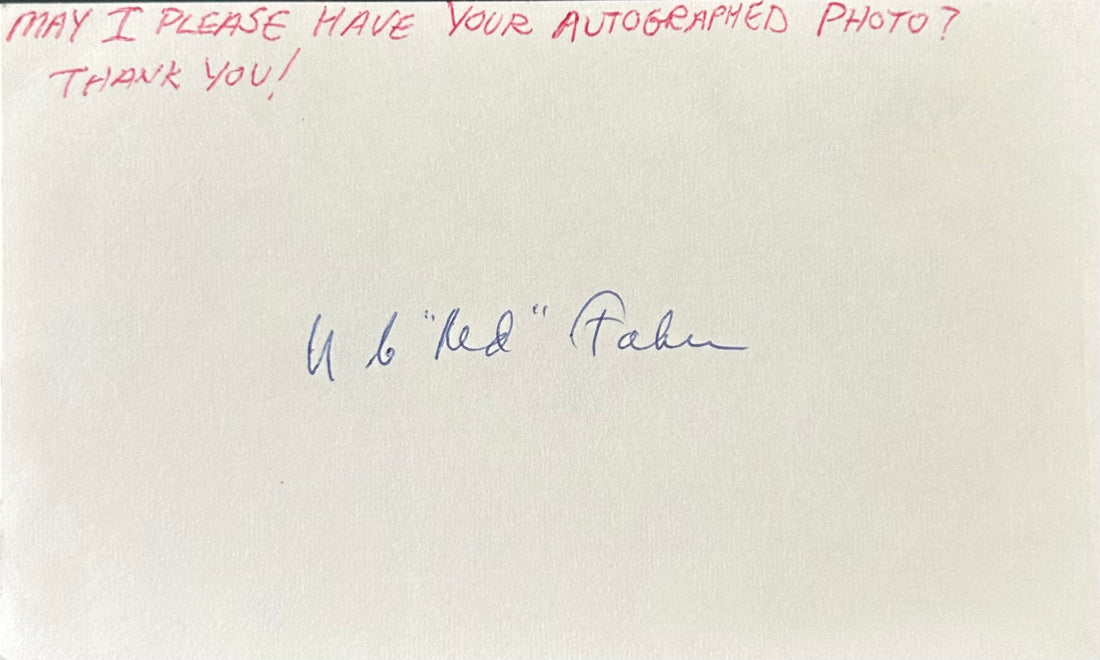 MAY I PLEASE HAVE YOUR AUTOGRAPHED PHOTO?
THANK YOU!
U C "Red" Faber